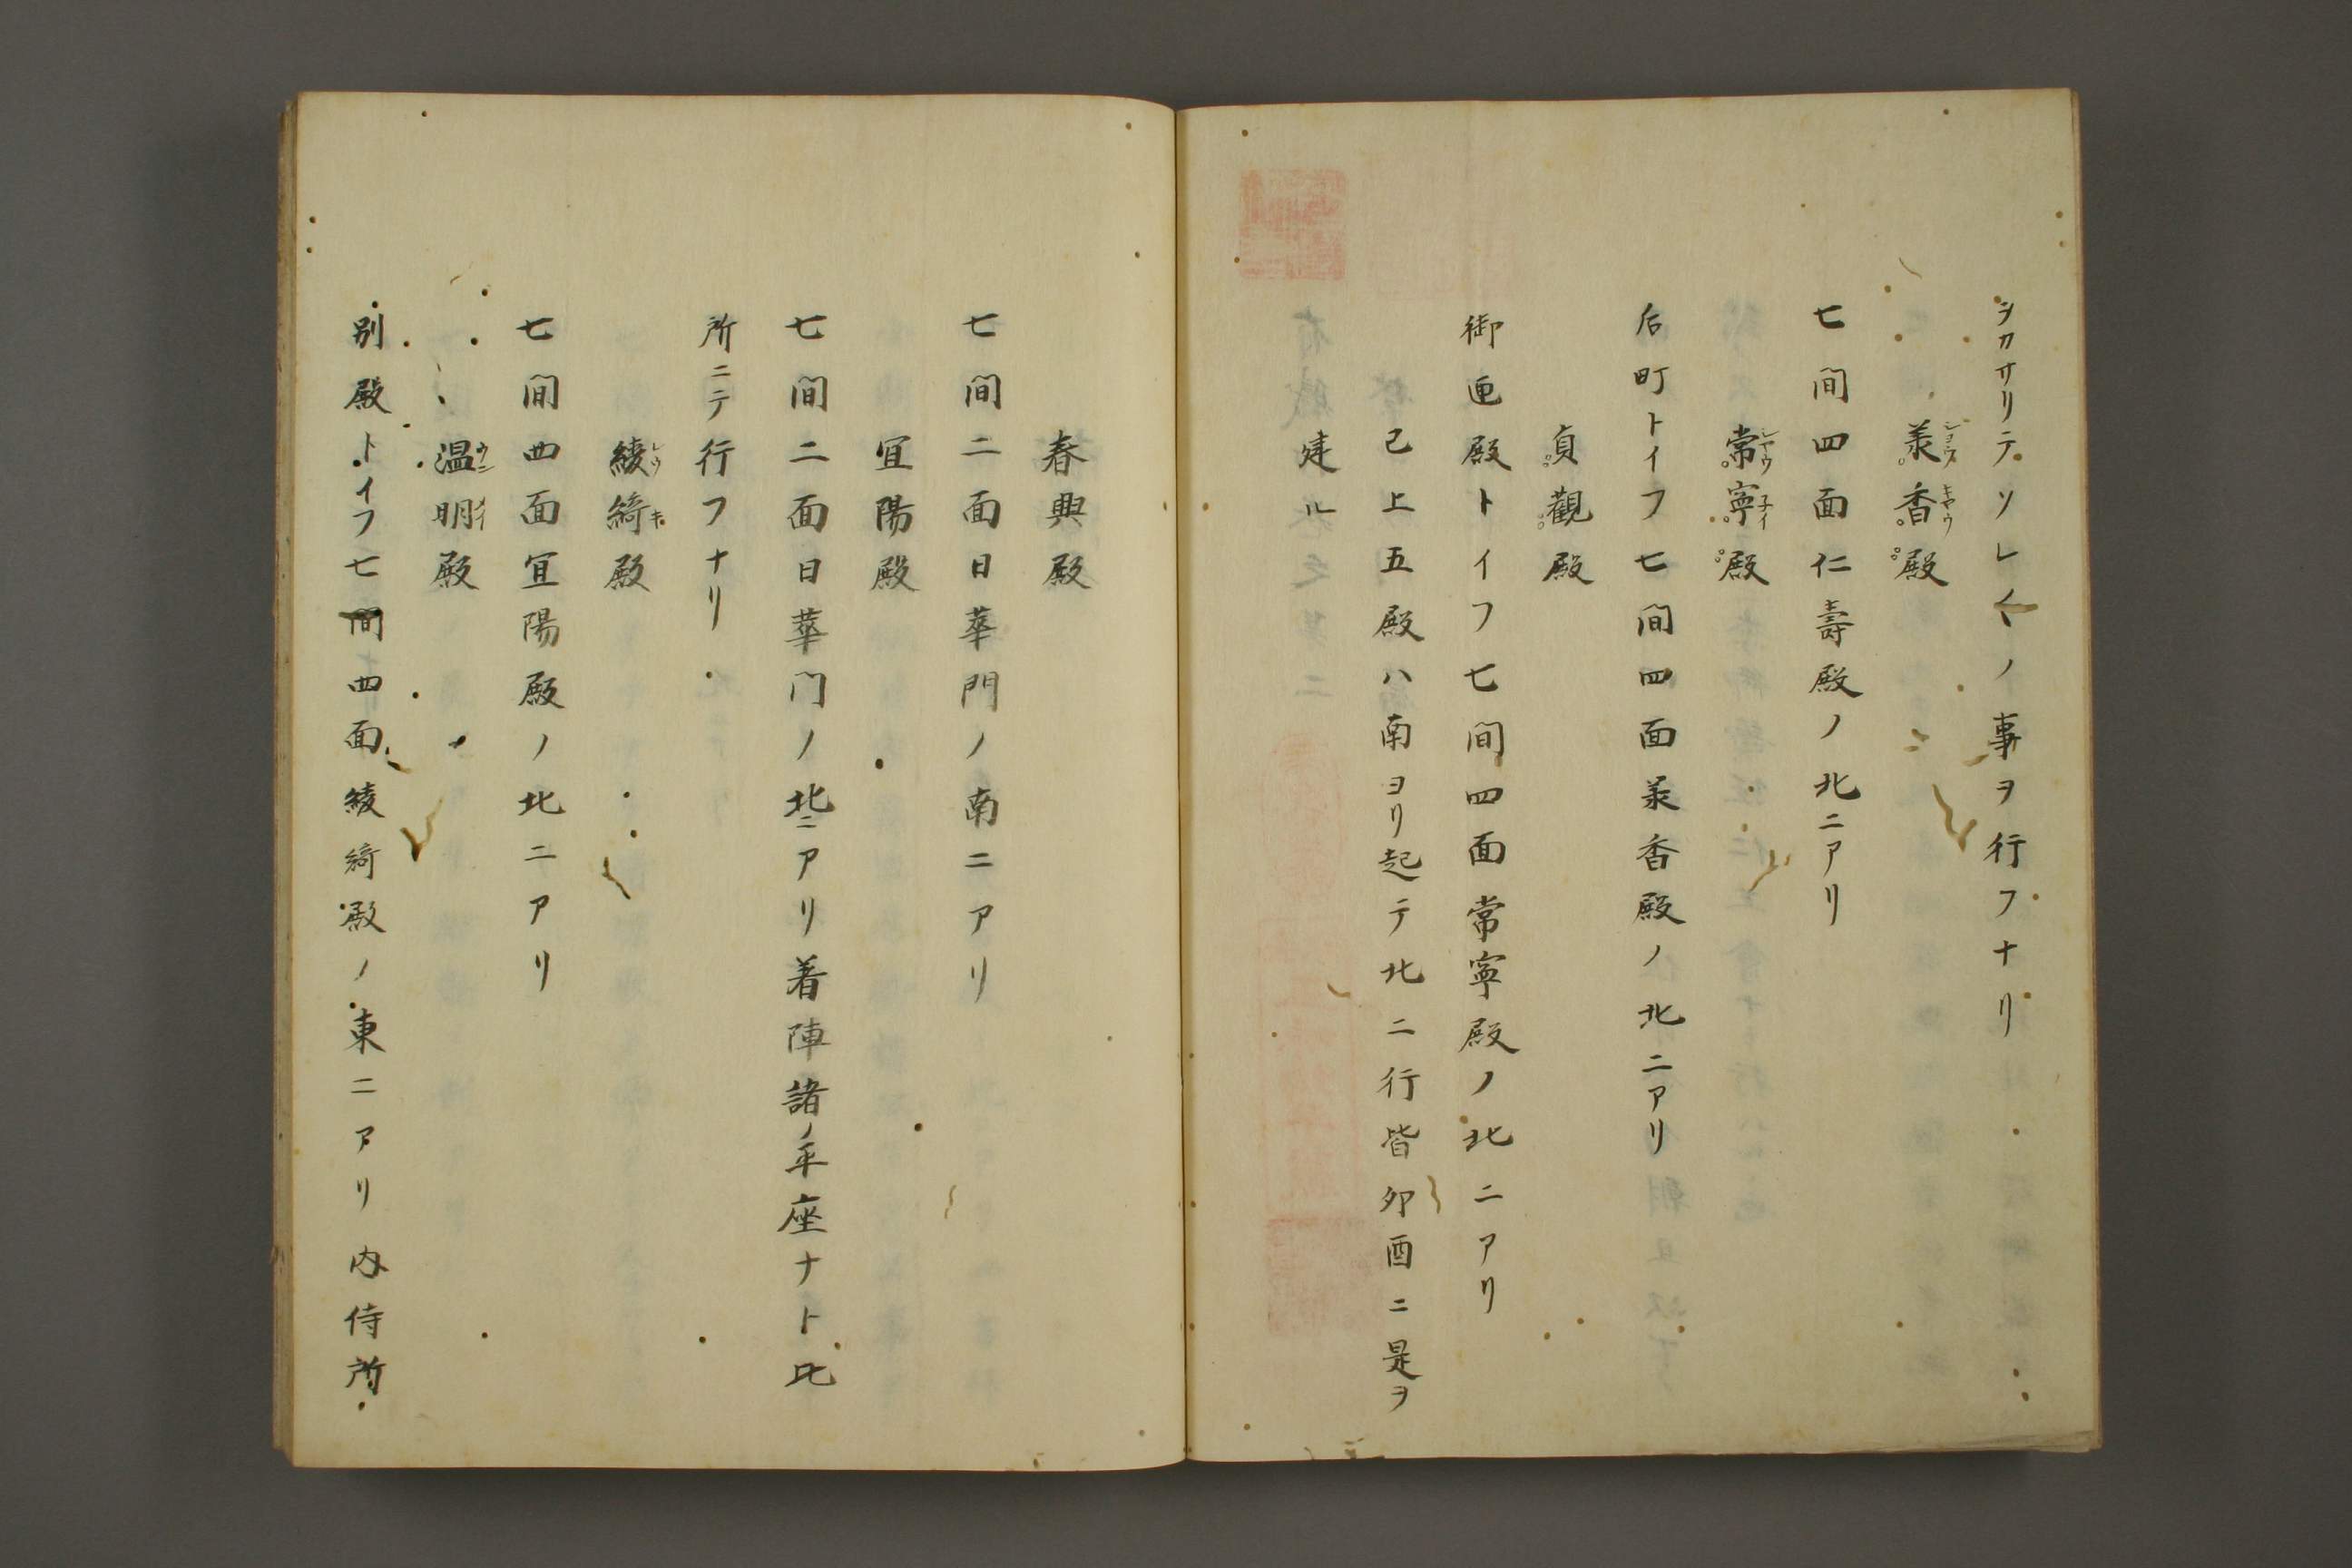 シカサリテソレ〱ノ事ヲ行フナリ
承香殿
七間四面仁壽殿ノ北ニアリ
常寧殿
后町トイフ七間四面承香殿ノ北ニアリ
貞觀殿
御匣殿トイフ七間四面常寧殿ノ北ニアリ
已上五殿ハ南ヨリ起テ北ニ行皆卯酉ニ是ヲ
建ル
春興殿
七間二面日華門ノ南ニアリ
宜陽殿
七間二面日華门ノ北ニアリ着陣諸ノ平座ナト此
所ニテ行フナリ
綾綺殿
七間四面宜陽殿ノ北ニアリ
温明殿
別殿トイフ七間四面綾綺殿ノ東ニアリ内侍所